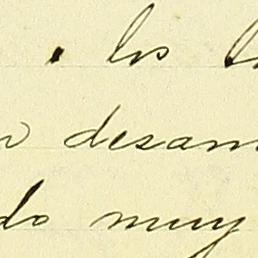 los
desam
do muy